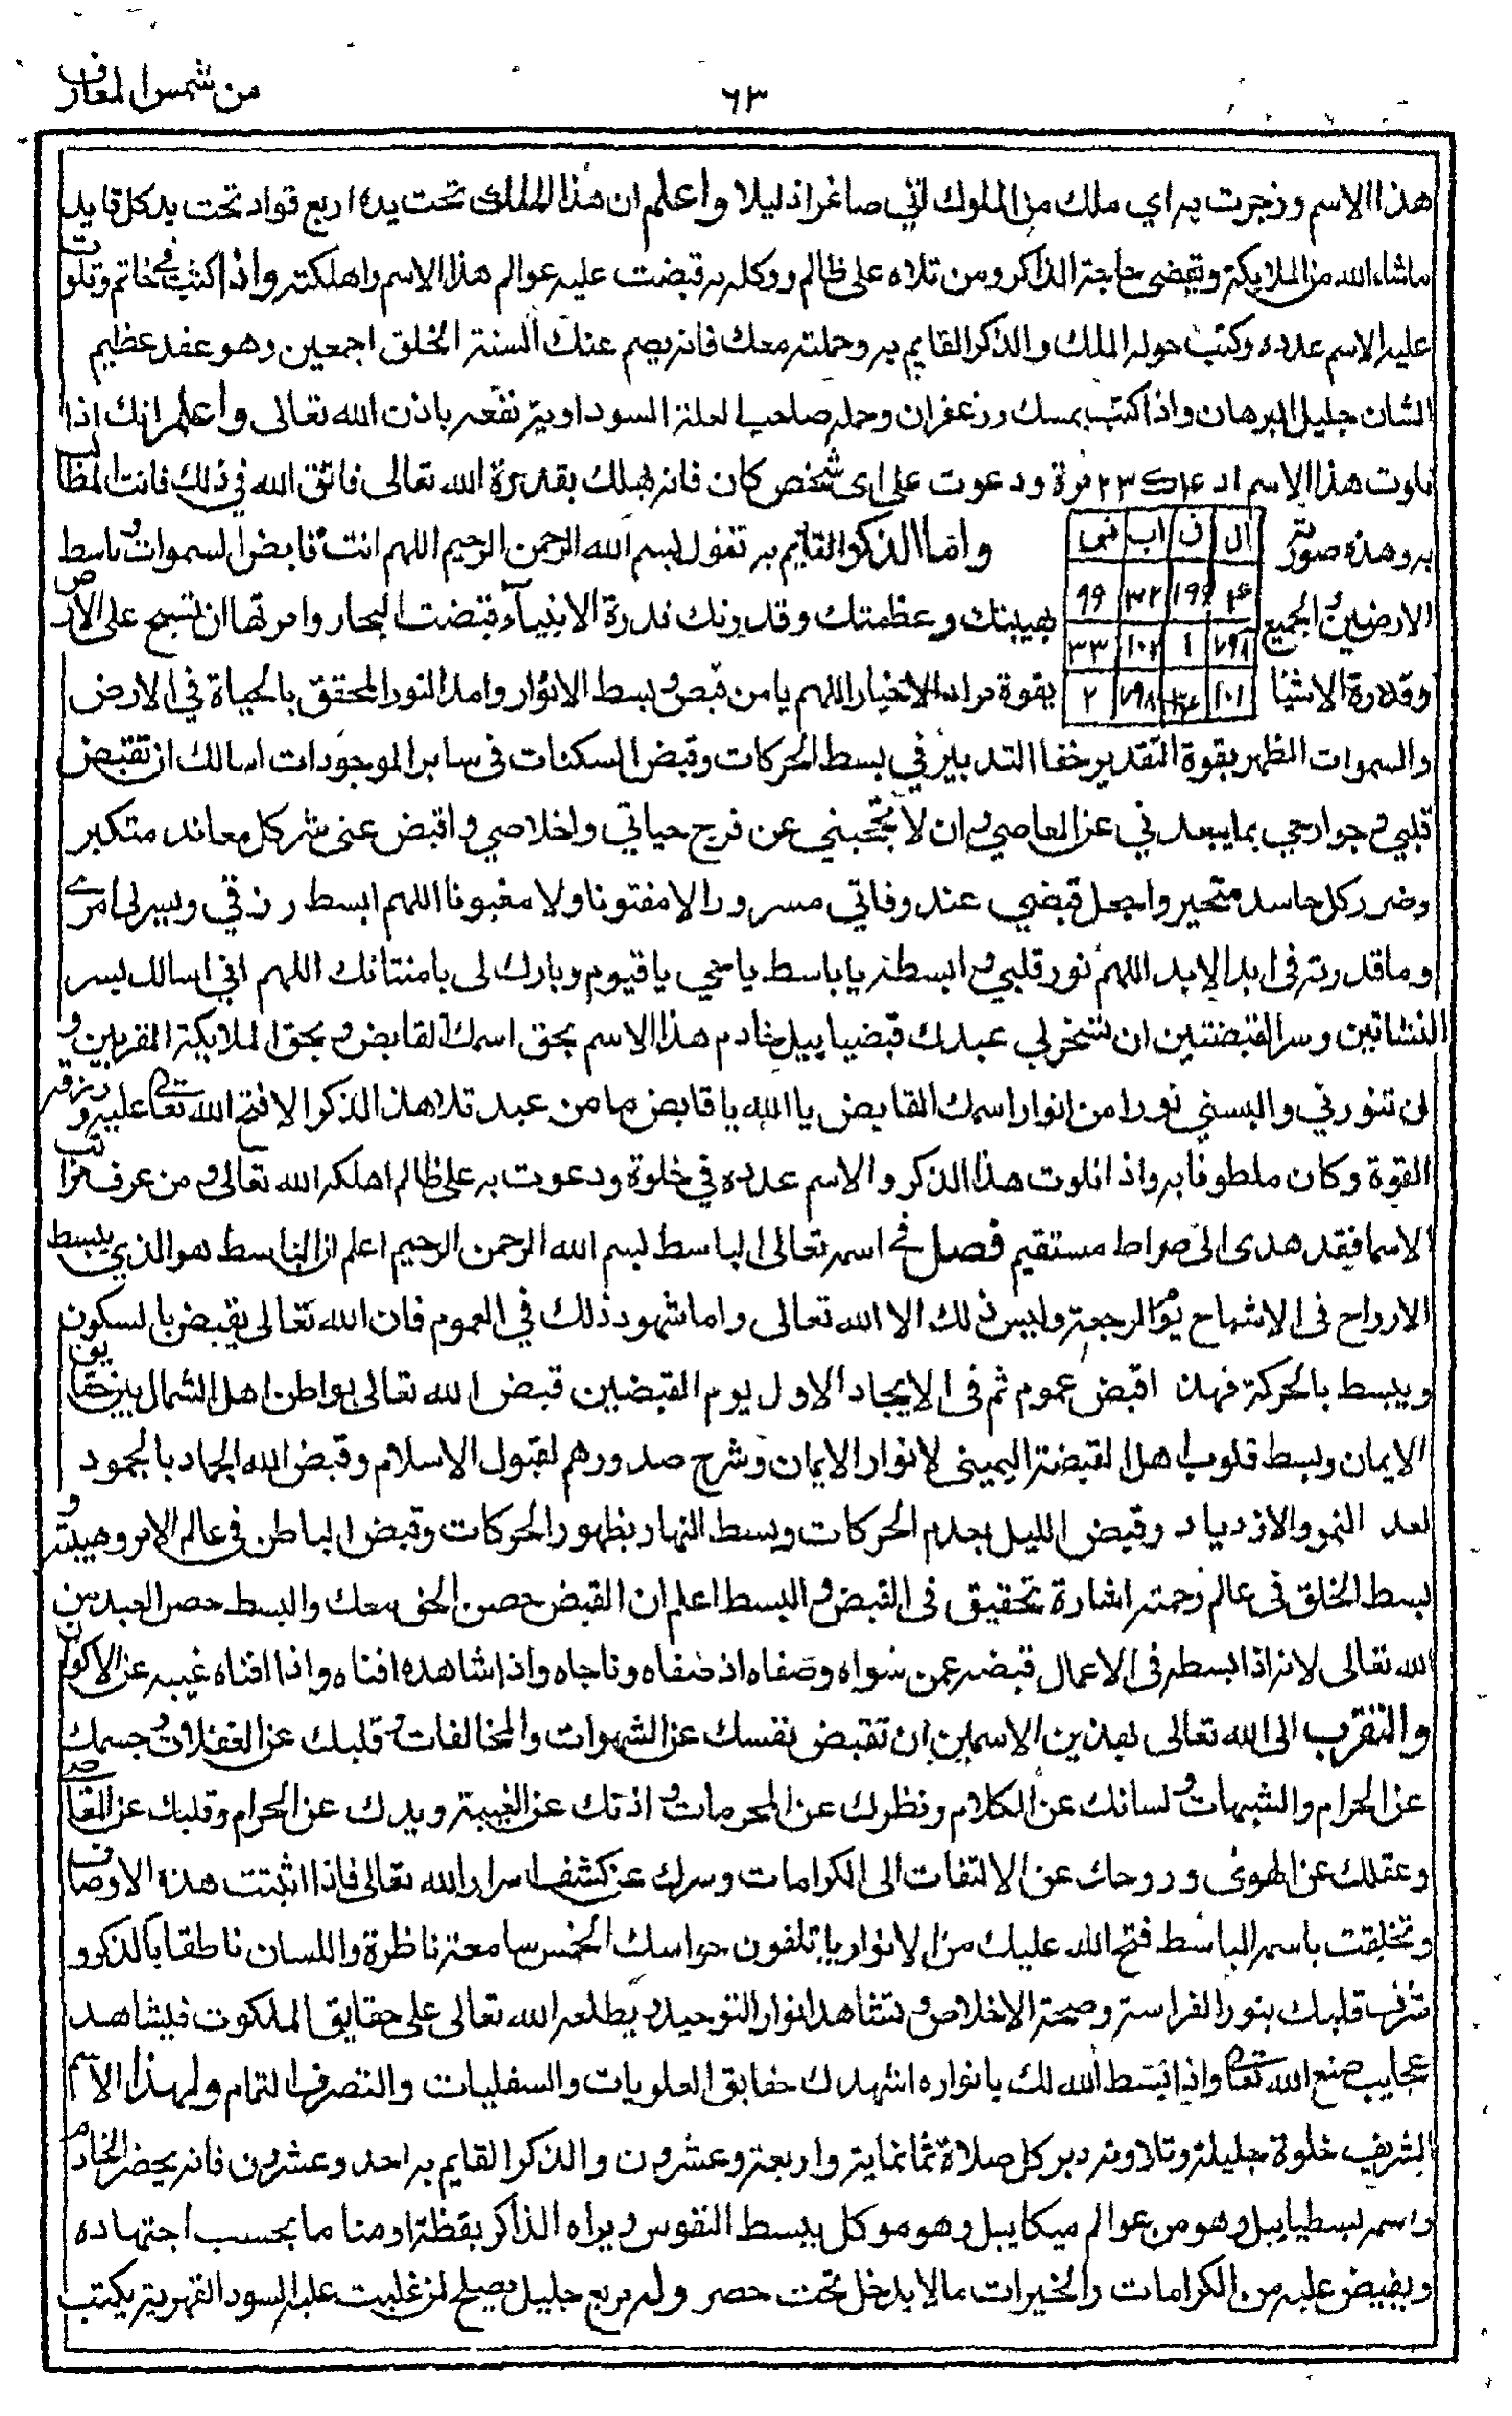 من شمس المعارف
٦٣
هذا الاسم وزجرت به اي ملك من الملوك اتي صاغرا ذليلا واعلم ان هذا الملك تحت يده اربع قواد تحت يد كل قايد
ماشاء الله من الملايكة وتقضى حاجة الذاكر ومن تلاه على ظالم ووكله به قبضت عليه عوالم هذا الاسم واهلكته واذا كتبت في خاتم وتلوت
عليه الاسم عدده وكتبت حوله الملك والذكر القايم به وحملته معك فانه يصم عنك السنة الخلق اجمعين وهو عقد عظيم
الشان جليل البرهان واذا كتب بمسك وزعفران وحمله صاحب لعلة السوداوية نفعه باذن الله تعالى واعلم انك اذا
تلوت هذا الاسم مرة ودعوت على اى شخص كان فانه يهلك بقدرة الله تعالى فاتق الله في ذلك فانت المطالب
به وهذه صورته
ال ن اب ضى
١٩٩ ٣٢ ٩٩
٧٩٨ ١ ١٠٢ ٣٣
١٠١ ٣٤ ٧٩٨ ٢
واما الذكر القايم به تقول بسم الله الرحمن الرحيم اللهم انت قابض السموات وباسط
الارضين والجميع بهيبتك وعظمتك وقدرتك قدرة الانبيآء قبضت البحار وامرتها ان تسبح على الارض
وقدرة الاشيا بقوة مراد الاخيار اللهم يا من قبض وبسط الانوار وامد النور المحقق بالحياة في الارض
والسموات الظهر بقوة التقدير خفا التدبير في بسط الحركات وقبض السكنات فى ساير الموجودات اسالك ان تقبض
قلبي وجوارحي بما يبعدني عن المعاصي وان لا تحجبني عن فرج حياتي واخلاصي واقبض عنى شر كل معاند متكبر
وضرر كل حاسد متحير واجعل قبضي عند وفاتي مسرورا لا مفتونا ولا مغبونا اللهم ابسط رزقي ويسر لى امرى
وما قدرته فى ابد الابد اللهم نور قلبي وابسطه يا باسط يا حي يا قيوم وبارك لى بامتنانك اللهم اني اسالك بسر
النشاتين وسر القبضتين ان تسخر لي عبدك قبضيابيل خادم هذا الاسم بحق اسمك القابض وبحق الملايكة المقربين و
ان تنورني والبسني نورا من انوار اسمك القابض يا الله يا قابض ما من عبد تلا هذا الذكر الا فتح الله تعالى عليه ورزقه
القوة وكان ملطوفا به واذا تلوت هذا الذكر والاسم عدده في خلوة ودعوت به على ظالم اهلكه الله تعالى ومن عرف مراتب
الاسما فقد هدى الى صراط مستقيم فصل في اسمه تعالى الباسط بسم الله الرحمن الرحيم اعلم ان الباسط هو الذي يبسط
الارواح فى الاشباح يوم الرجعة وليس ذلك الا الله تعالى واما شهود ذلك في العموم فان الله تعالى يقبض بالسكون
ويبسط بالحركة فهذا قبض عموم ثم فى الايجاد الاول يوم القبضين قبض الله تعالى بواطن اهل الشمال بين حقايق
الايمان وبسط قلوب اهل القبضة اليمينى لانوار الايمان وشرح صدورهم لقبول الاسلام وقبض الله الجماد بالجمود
لعد النمو والازدياد وقبض الليل بعدم الحركات وبسط النهار بظهور الحركات وقبض الباطن فى عالم الامر وهيبته و
بسط الخلق فى عالم رحمته اشارة تحقيق فى القبض والبسط اعلم ان القبض حصن الحق معك والبسط حصن العبد من
الله تعالى لانه اذا بسطه فى الاعمال قبضه عمن سواه وصفاه اذ صفاه وناجاه واذا شاهده افناه واذا افناه غيبه عن الاكوان
والتقرب الى الله تعالى بهذين الاسمين ان تقبض نفسك عن الشهوات والمخالفات وقلبك عن الغفلات وجسمك
عن الحرام والشبهات ولسانك عن الكلام ونظرك عن المحرمات واذنك عن الغيبة ويدك عن الحرام وقلبك عن المقاصد
وعقلك عن الهوى وروحك عن الالتفات الى الكرامات وسرك عن كشف اسرار الله تعالى فاذا اثبتت هذه الاوصاف
وتخلقت باسمه الباسط فتح الله عليك من الانوار حواسك الخمس سامعة ناظرة واللسان ناطقا بالذكر و
شرف قلبك بنور الفراسة وصحة الاخلاص وتشاهد انوار التوحيد ويطلعه الله تعالى على حقايق الملكوت فيشاهد
عجايب صنع الله تعالى واذا بسط الله لك بانواره اشهدك حقايق العلويات والسفليات والتصرف التام ولهذا الاسم
الشريف خلوة جليلة وتلاوته دبر كل صلاة ثمانماية واربعة وعشرون والذكر القايم به احد وعشرون فانه يحضر الخادم
واسمه بسطيابيل وهو من عوالم ميكاييل وهو موكل ببسط النفوس ويراه الذاكر يقظة او مناما بحسب اجتهاده
ويفيض عليه من الكرامات والخيرات مالا يدخل تحت حصر وله مربع جليل يصلح لمن غلبت عليه السودا القهرية يكتب